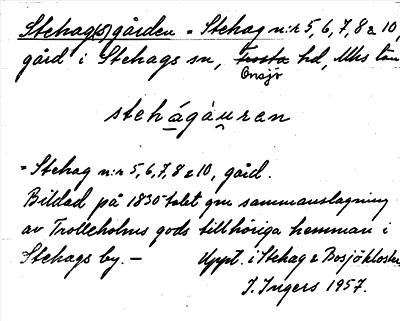 Stehag(s)gården = Stehag n:r 5, 6, 7, 8 & 10,
gård i Stehags sn, Frosta hd, Mhs län
Onsjö
stehágàuran
= Stehag n:r 5, 6, 7, 8 & 10, gård.
Bildad på 1830-talet gm sammanslagning
av Trolleholms gods tillhöriga hemman i
Stehags by. — Uppt. i Stehag & Bosjökloster
I. Ingers 1957.